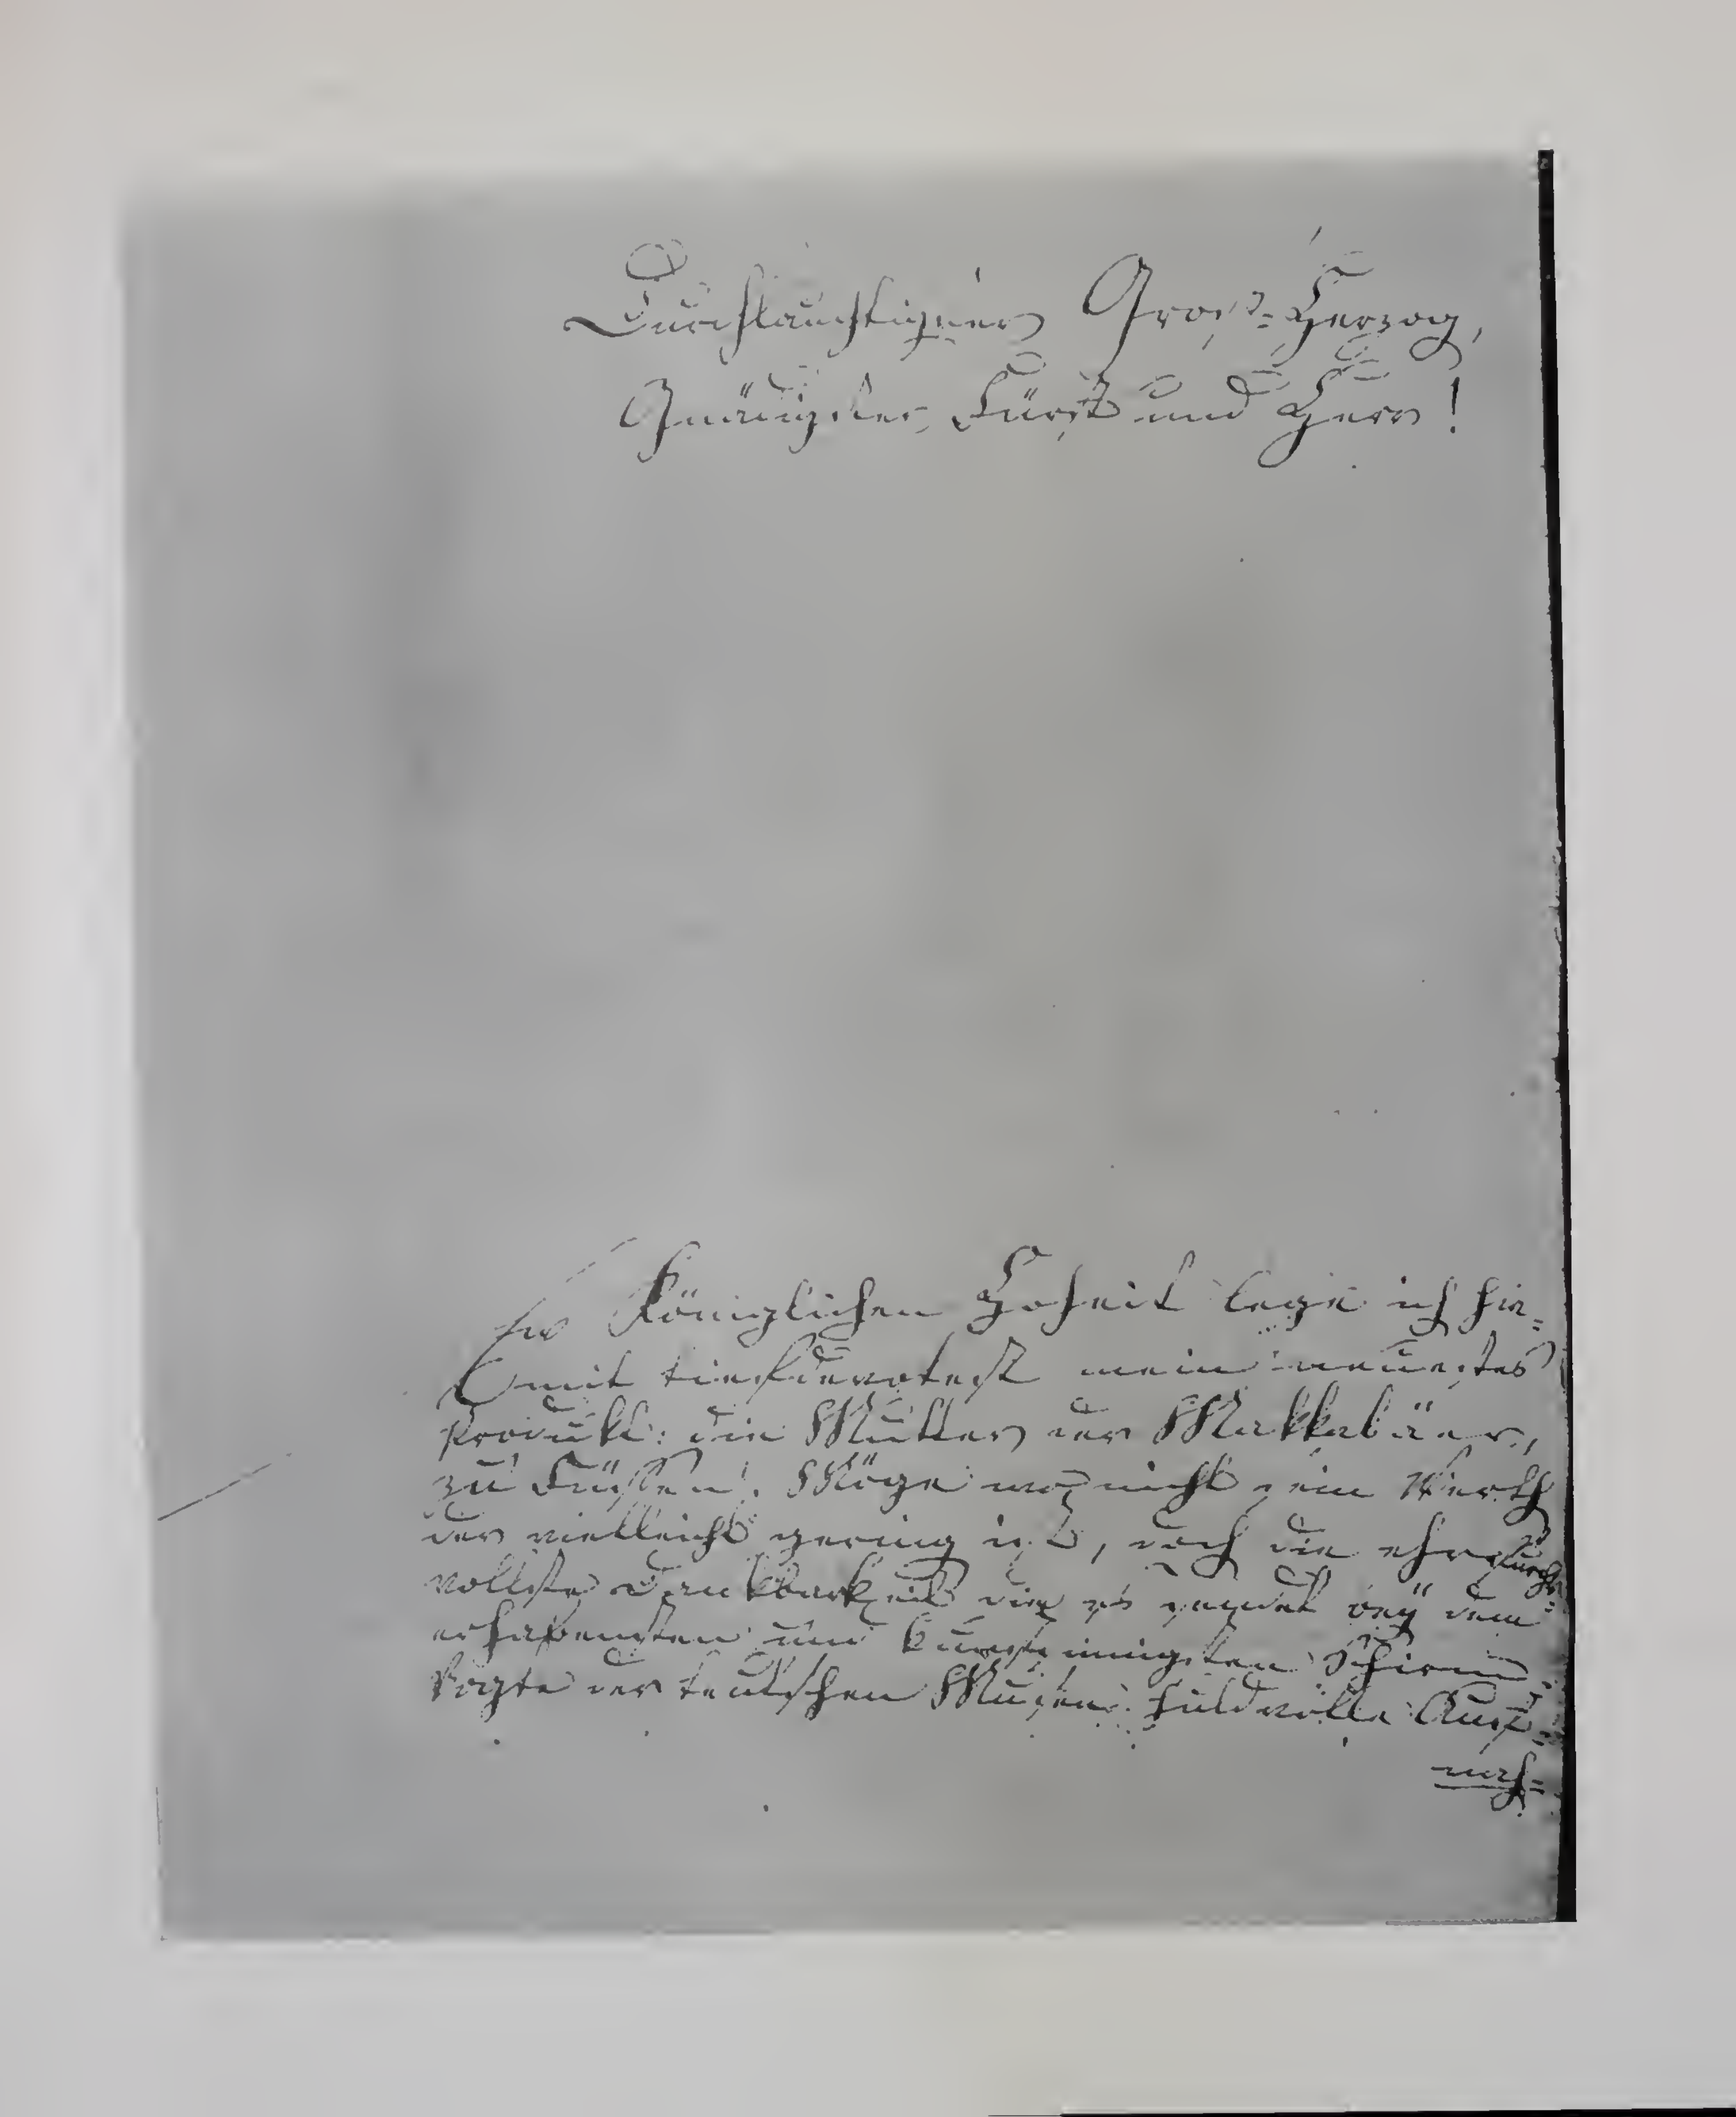 Durchlauchtigster Gross-Herzog,
Gnädigster Fürst und Herr!
Ew Königlichen Hoheit lege ich hie-
mit tiefdevotest mein neuestes
Produkt: die Mutter der Makkabäer,
zu Füssen! Möge wo nicht sein Werth
der vielleicht gering ist, doch die ehrfurchts-
vollste Dankbarkeit die es sendet bey dem
erhabensten und kunstsinnigsten Schirm-
Vogte der teutschen Musen huldvolle Auf-
nah-